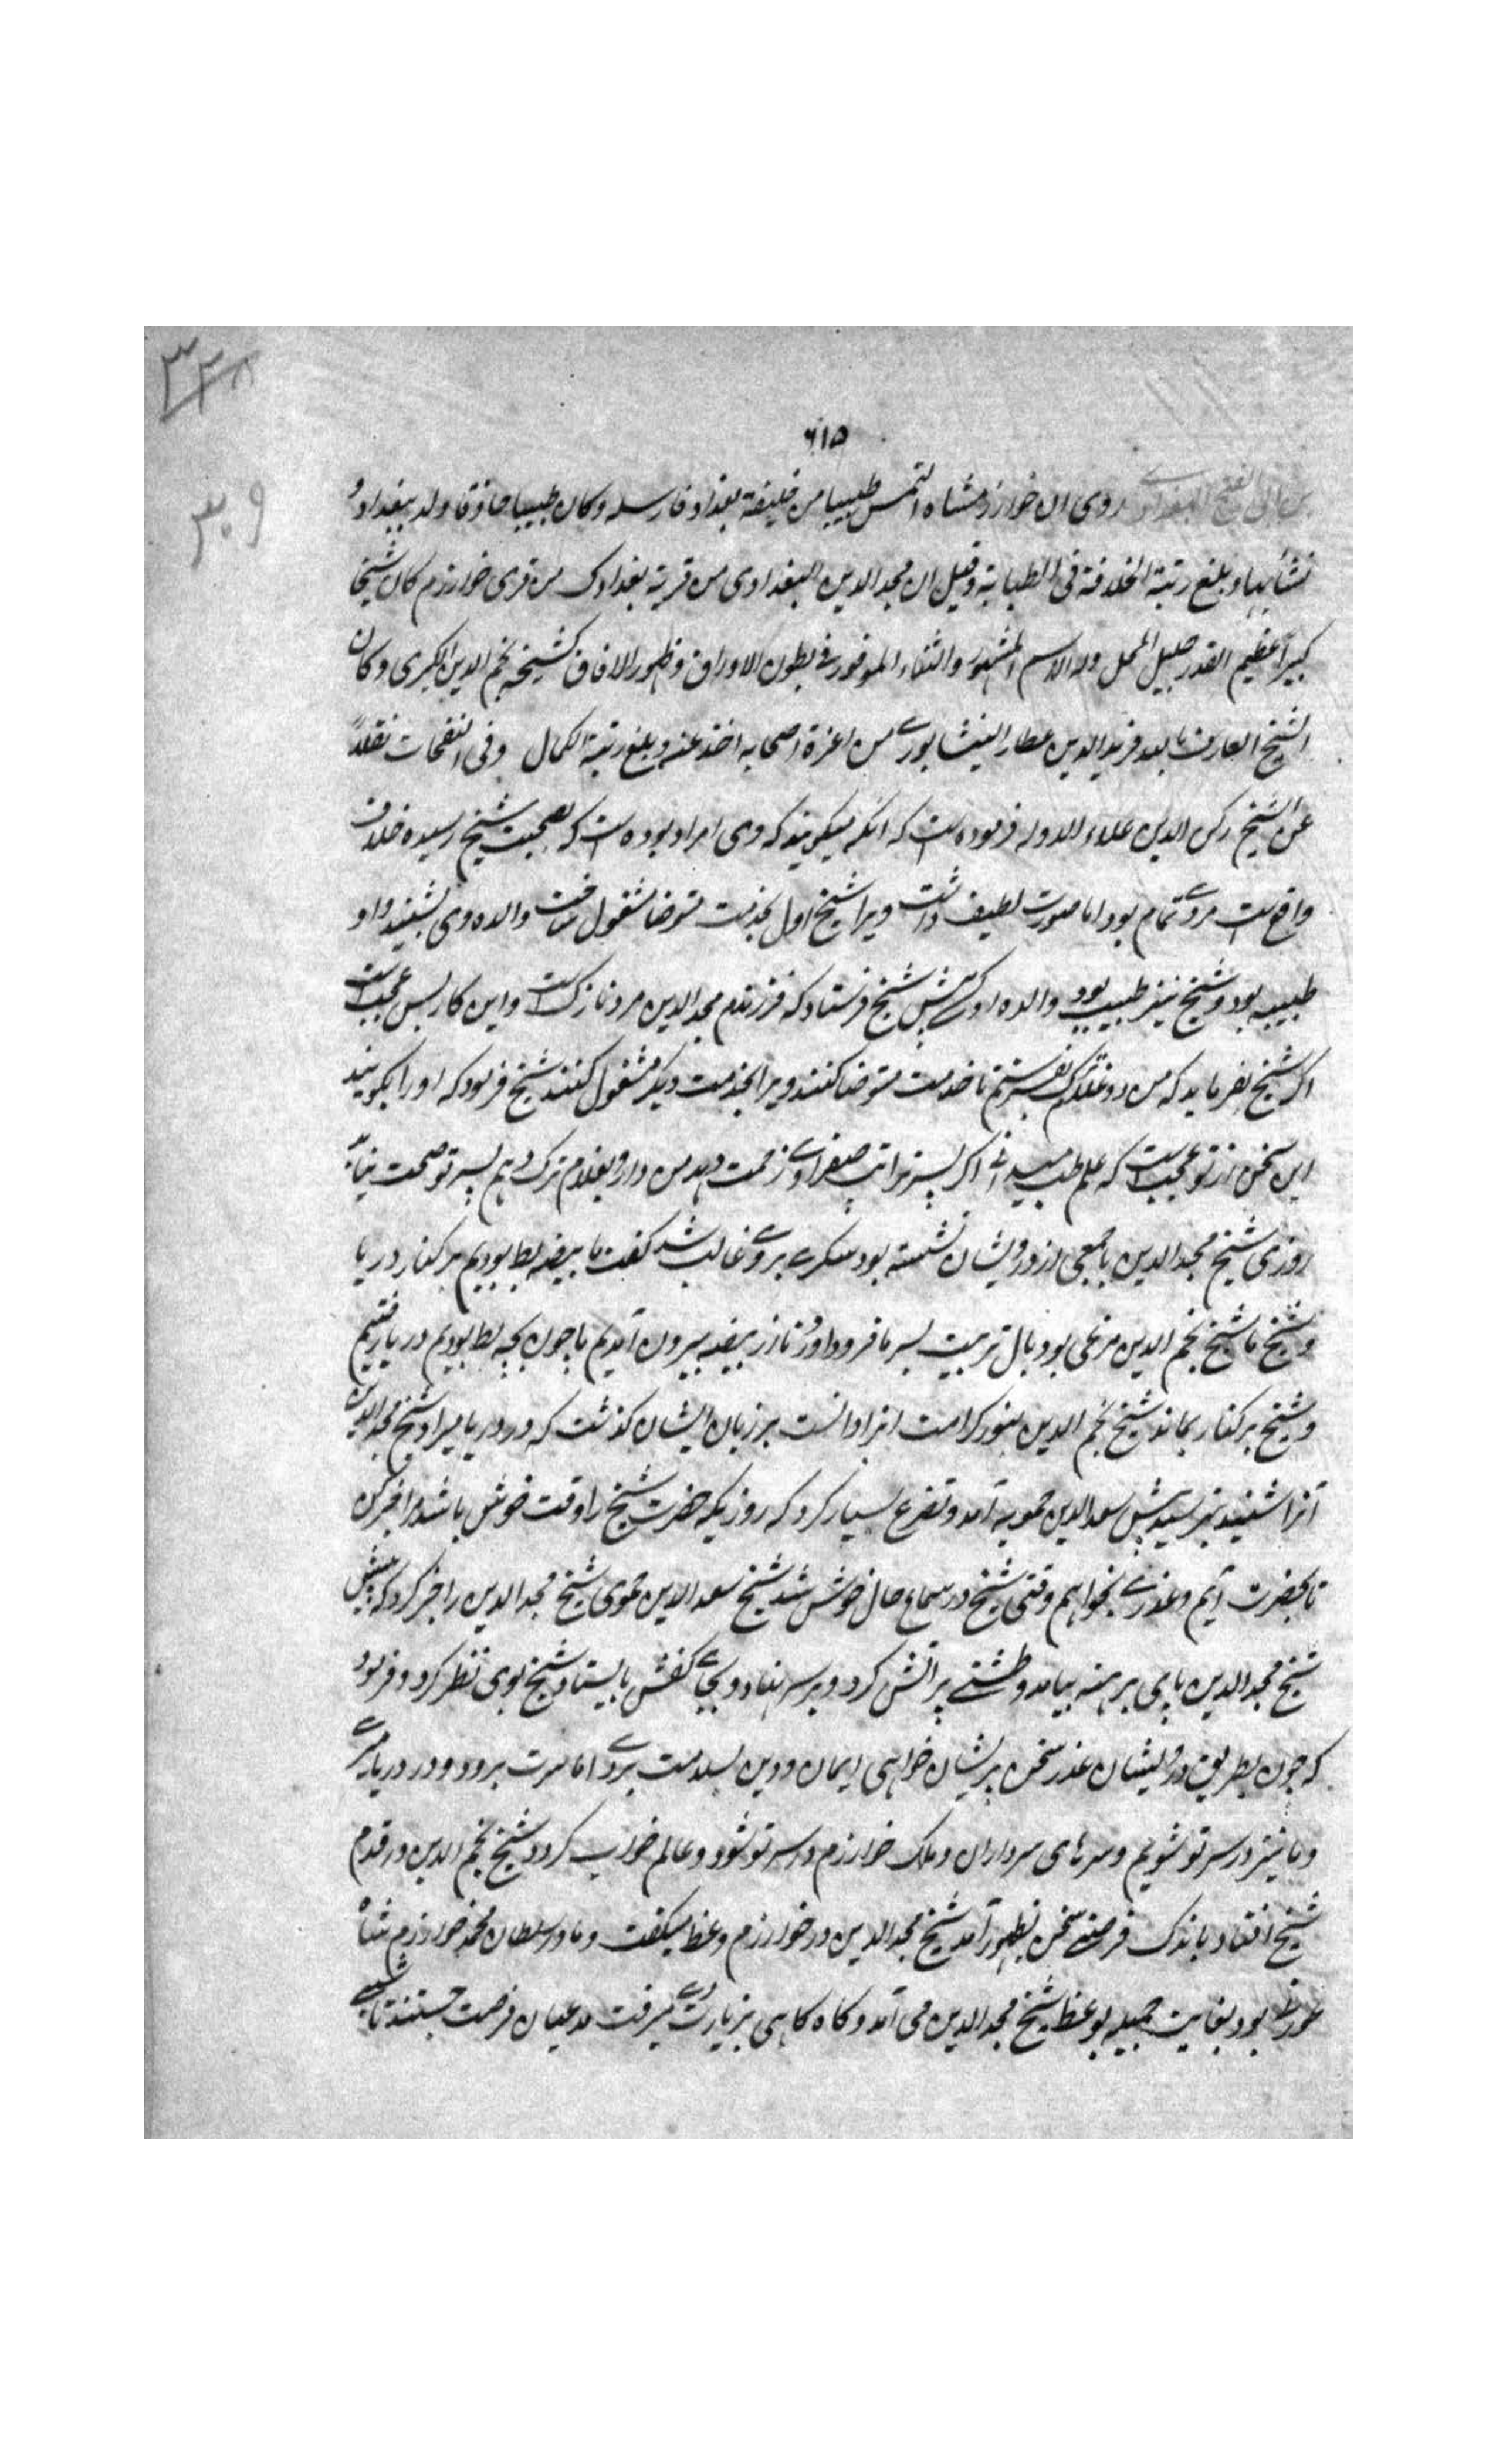 ۳۲۸
۳۰۹
۶۱۵
بن ابی الفتح البغدادی روی ان خوارزمشاه التمس طبیبا من خلیفة بغداد فارسله وکان طبیبا حاذقا ولد ببغداد و
نشأ بها و بلغ رتبة الخلافة فی الطبابة وقیل ان مجد الدین البغدادی من قریة بغدادک من قری خوارزم کان شیخا
کبیراً عظیم القدر جلیل المحل وله الاسم المشهور والثناء الموفور فی بطون الاوراق و ظهور الافاق کشیخه نجم الدین الکبری و کان
الشیخ العارف بالله فریدالدین عطار النیشابوری من اعزة اصحابه اخذ عنه و بلغ رتبة الکمال وفی النفحات نقلاً
عن الشیخ رکن الدین علاء الدوله فرموده است که انکه میکویند که وی امرد بوده است که بصحبت شیخ رسیده خلاف
واقع است مردی تمام بود اما صورت لطیف داشت ویرا شیخ اول بخدمت متوضا مشغول ساخت والده وی بشنید و او
طبیبه بود و شیخ نیز طبیب بود والده او کسی پیش شیخ فرستاد که فرزندم مجد الدین مرد نازک است و این کار بس عجب است
اکر شیخ بفرماید که من ده غلام ترک بفرستم تا خدمت متوضا کنند ویرا بخدمت دیکر مشغول کنند شیخ فرمود که او را بکویند
این سخن از تو عجب است که علم طب میدانی اکر پسر ترا تب صفراوی زحمت دهد من دارو بغلام ترک دهم پسر تو صحت نیابد
روزی شیخ مجد الدین با جمعی از درویشان نشسته بود سکری بروی غالب شد کفت ما بیضه بط بودیم بر کنار دریا
و شیخ ما شیخ نجم الدین مرغی بود بال تربیت بسر ما فرود آورد تا از بیضه بیرون آمدیم ما چون بچه بط بودیم در دریا رفتیم
و شیخ بر کنار بماند شیخ نجم الدین بنور کرامت انرا دانست بر زبان ایشان کذشت که در دریا میراد شیخ مجد الدین
آنرا شنید بترسید پیش سعد الدین حمویه آمد و تضرع بسیار کرد که روزیکه حضرت شیخ را وقت خوش باشد مرا خبر کن
تا بحضرت آیم و عذری بخواهم وقتی شیخ در سماع حال خوش شد شیخ سعد الدین حموی شیخ مجد الدین را خبر کرد که پیش
شیخ مجد الدین پای برهنه بیامد و طشتی پر آتش کرد و بر سر نهاد و بجای کفش بایستاد شیخ بوی نظر کرد و فرمود
که چون بطریق درویشان عذر سخن پریشان خواهی ایمان و دین بسلامت بردی اما سرت برود و در دریا میری
و ما نیز در سر تو شویم و سرهای سرداران و ملک خوارزم در سر تو شود و عالم خراب کردد شیخ نجم الدین در قدم
شیخ افتاد باندک فرصتی سخن بظهور آمد شیخ مجد الدین در خوارزم وعظ میکفت و مادر سلطان محمد خوارزم شاه
عورتی بود بغایت جمیله بوعظ شیخ مجد الدین می آمد و کاه کاهی بزیارت وی میرفت مدعیان فرصت جستند تا شبی